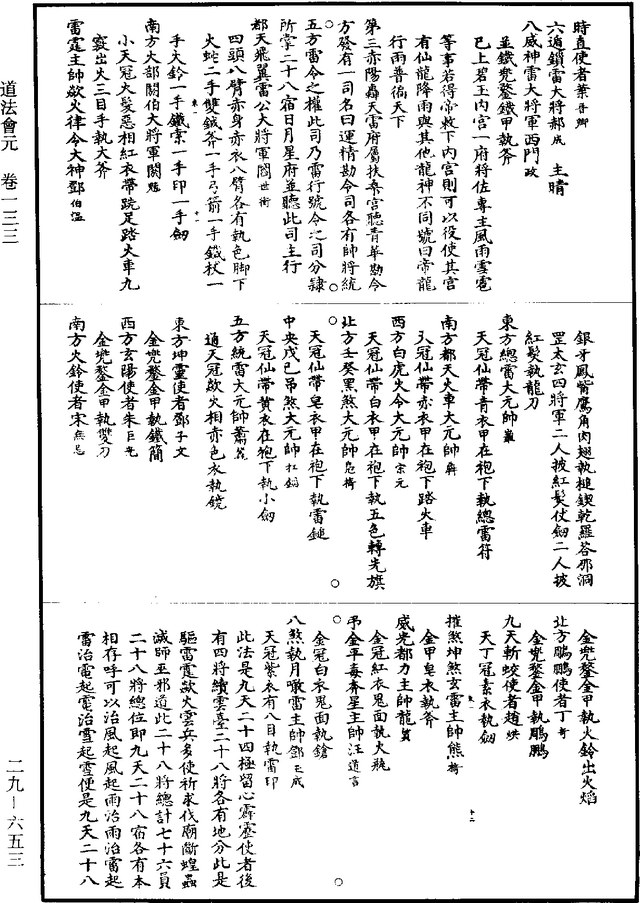 道法會元　卷一三三
二九—六五三
時直使者葉晋卿
六適鎖雷大將郝成　主晴
八威神雷大將軍西門政
並鐵兜鍪鐵甲執斧
已上碧玉內宮一府將佐專主風雨雪雹
等事若得帝敕下內宮則可以役使其宮
有仙龍降雨與其他龍神不同號曰帝龍
行雨普徧天下
第三赤陽轟天雷府屬扶桑宮聽青華勘令
方發有一司名曰運精勘令司各有帥將統
五方雷令之權此司乃雷行號令之司分隸
所掌二十八宿日月星府並聽此司主行
都天飛翼雷公大將軍闊世衡
四頭八臂赤身赤衣八臂各有執色脚下
火蛇二手雙鉞斧一手弓箭一手鐵杖一
手火鈴一手鐵索一手印一手劒
南方火部閼伯大將軍閼
小天冠火髮惡相紅衣帶跣足踏火車九
竅出火三目手執大斧
雷霆主帥歘火律令大神鄧伯溫
銀牙鳳觜鷹角肉翅執槌鍥乾羅荅那洞
罡太玄四將軍二人披紅髮仗劒二人披
紅髮執龍刀
東方總雷大元帥
天冠仙帶青衣甲在袍下執總雷符
南方都天火車大元帥
天冠仙帶赤衣甲在袍下踏火車
西方白虎火令大元帥宗元
天冠仙帶白衣甲在袍下執五色轉光旗
北方壬癸黑煞大元帥
天冠仙帶皂衣甲在袍下執雷鎚
中央戊己吊煞大元帥杜
天冠仙帶黃衣在袍下執小劒
五方統雷大元帥蕭
通天冠歘火相亦色衣執鏡
東方坤靈使者鄧子文
金兜鍪金甲執鐵簡
西方玄陽使者朱巨光
金兜鍪金甲執雙刀
南方火鈴使者宋無忌
金兜鍪金甲執火鈴出火焰
北方鵬鵬使者丁
金兜鍪金甲執鵬鵬
九天斬蛟使者趙
天丁冠素衣執劒
摧煞坤煞玄雷主帥熊
金甲皂衣執斧
威光都力主帥龍
金冠紅衣鬼面執火瓶
孛金平毒奔星主帥汪道言
金冠白衣鬼面執鎗
八煞執月噉雷主帥鄧
天冠紫衣有八目執雷印
此法是九天二十四極留心霹靂使者後
有四將續雲臺二十八將各有地分此是
驅雷霆歘火雲兵多使祈求伐廟斷蝗蟲
誡師巫邪道此二十八將總計七十六員
二十八將總位即九天二十八宿各有本
相存呼可以治風起風起雨治雨治雷起
雷治電起電治雪起雪便是九天二十八